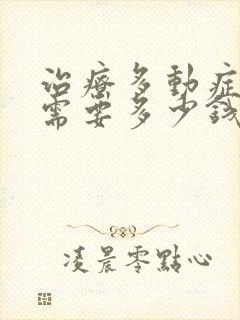 治療多動症
需要多少錢
凌晨零點心